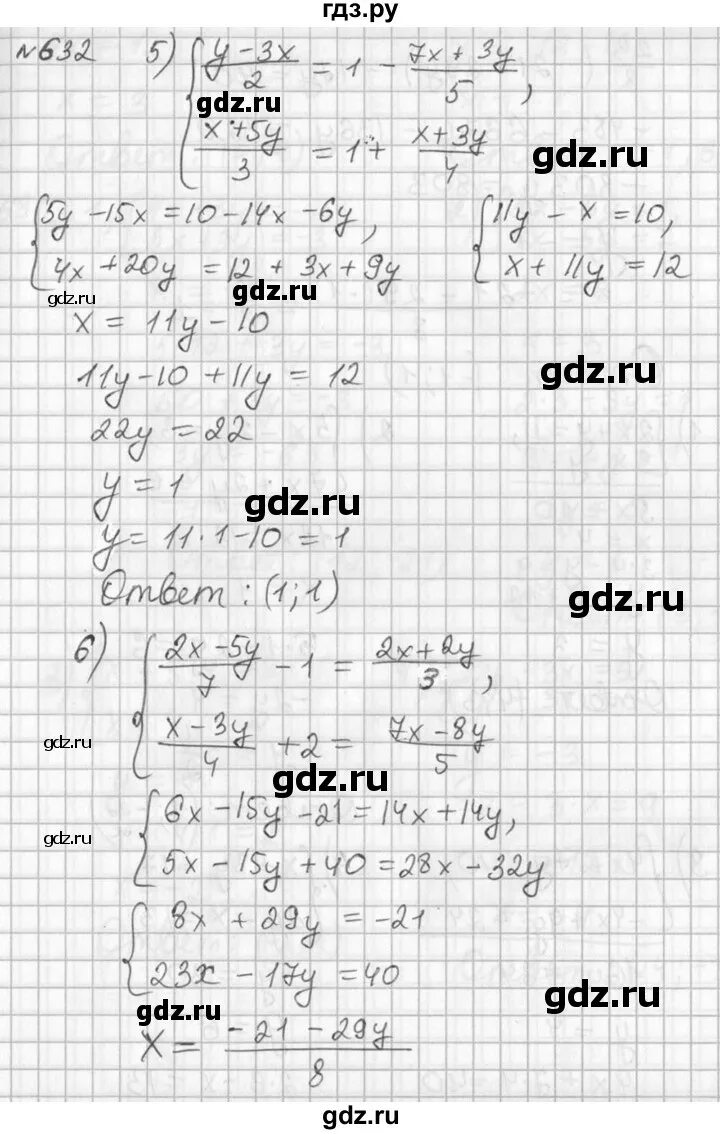 гдз.ру
№632 5) { (y - 3x)/2 = 1 - (7x + 3y)/5 ,
gdz.ru
(x + 5y)/3 = 1 + (x + 3y)/4
gdz.ru
{ 5y - 15x = 10 - 14x - 6y, { 11y - x = 10,
4x + 20y = 12 + 3x + 9y x + 11y = 12
gdz.ru gdz.ru
x = 11y - 10
11y - 10 + 11y = 12 gdz.ru
22y = 22
y = 1
gdz.ru
y = 11 · 1 - 10 = 1
Ответ : (1; 1) gdz.ru
6) { (2x - 5y)/7 - 1 = (2x + 2y)/3 ,
gdz.ru (x - 3y)/4 + 2 = (7x - 8y)/5
gdz.ru
{ 6x - 15y - 21 = 14x + 14y,
gdz.ru
5x - 15y + 40 = 28x - 32y
{ 8x + 29y = -21
23x - 17y = 40
gdz.ru gdz.ru
x = (-21 - 29y)/8
gdz.ru